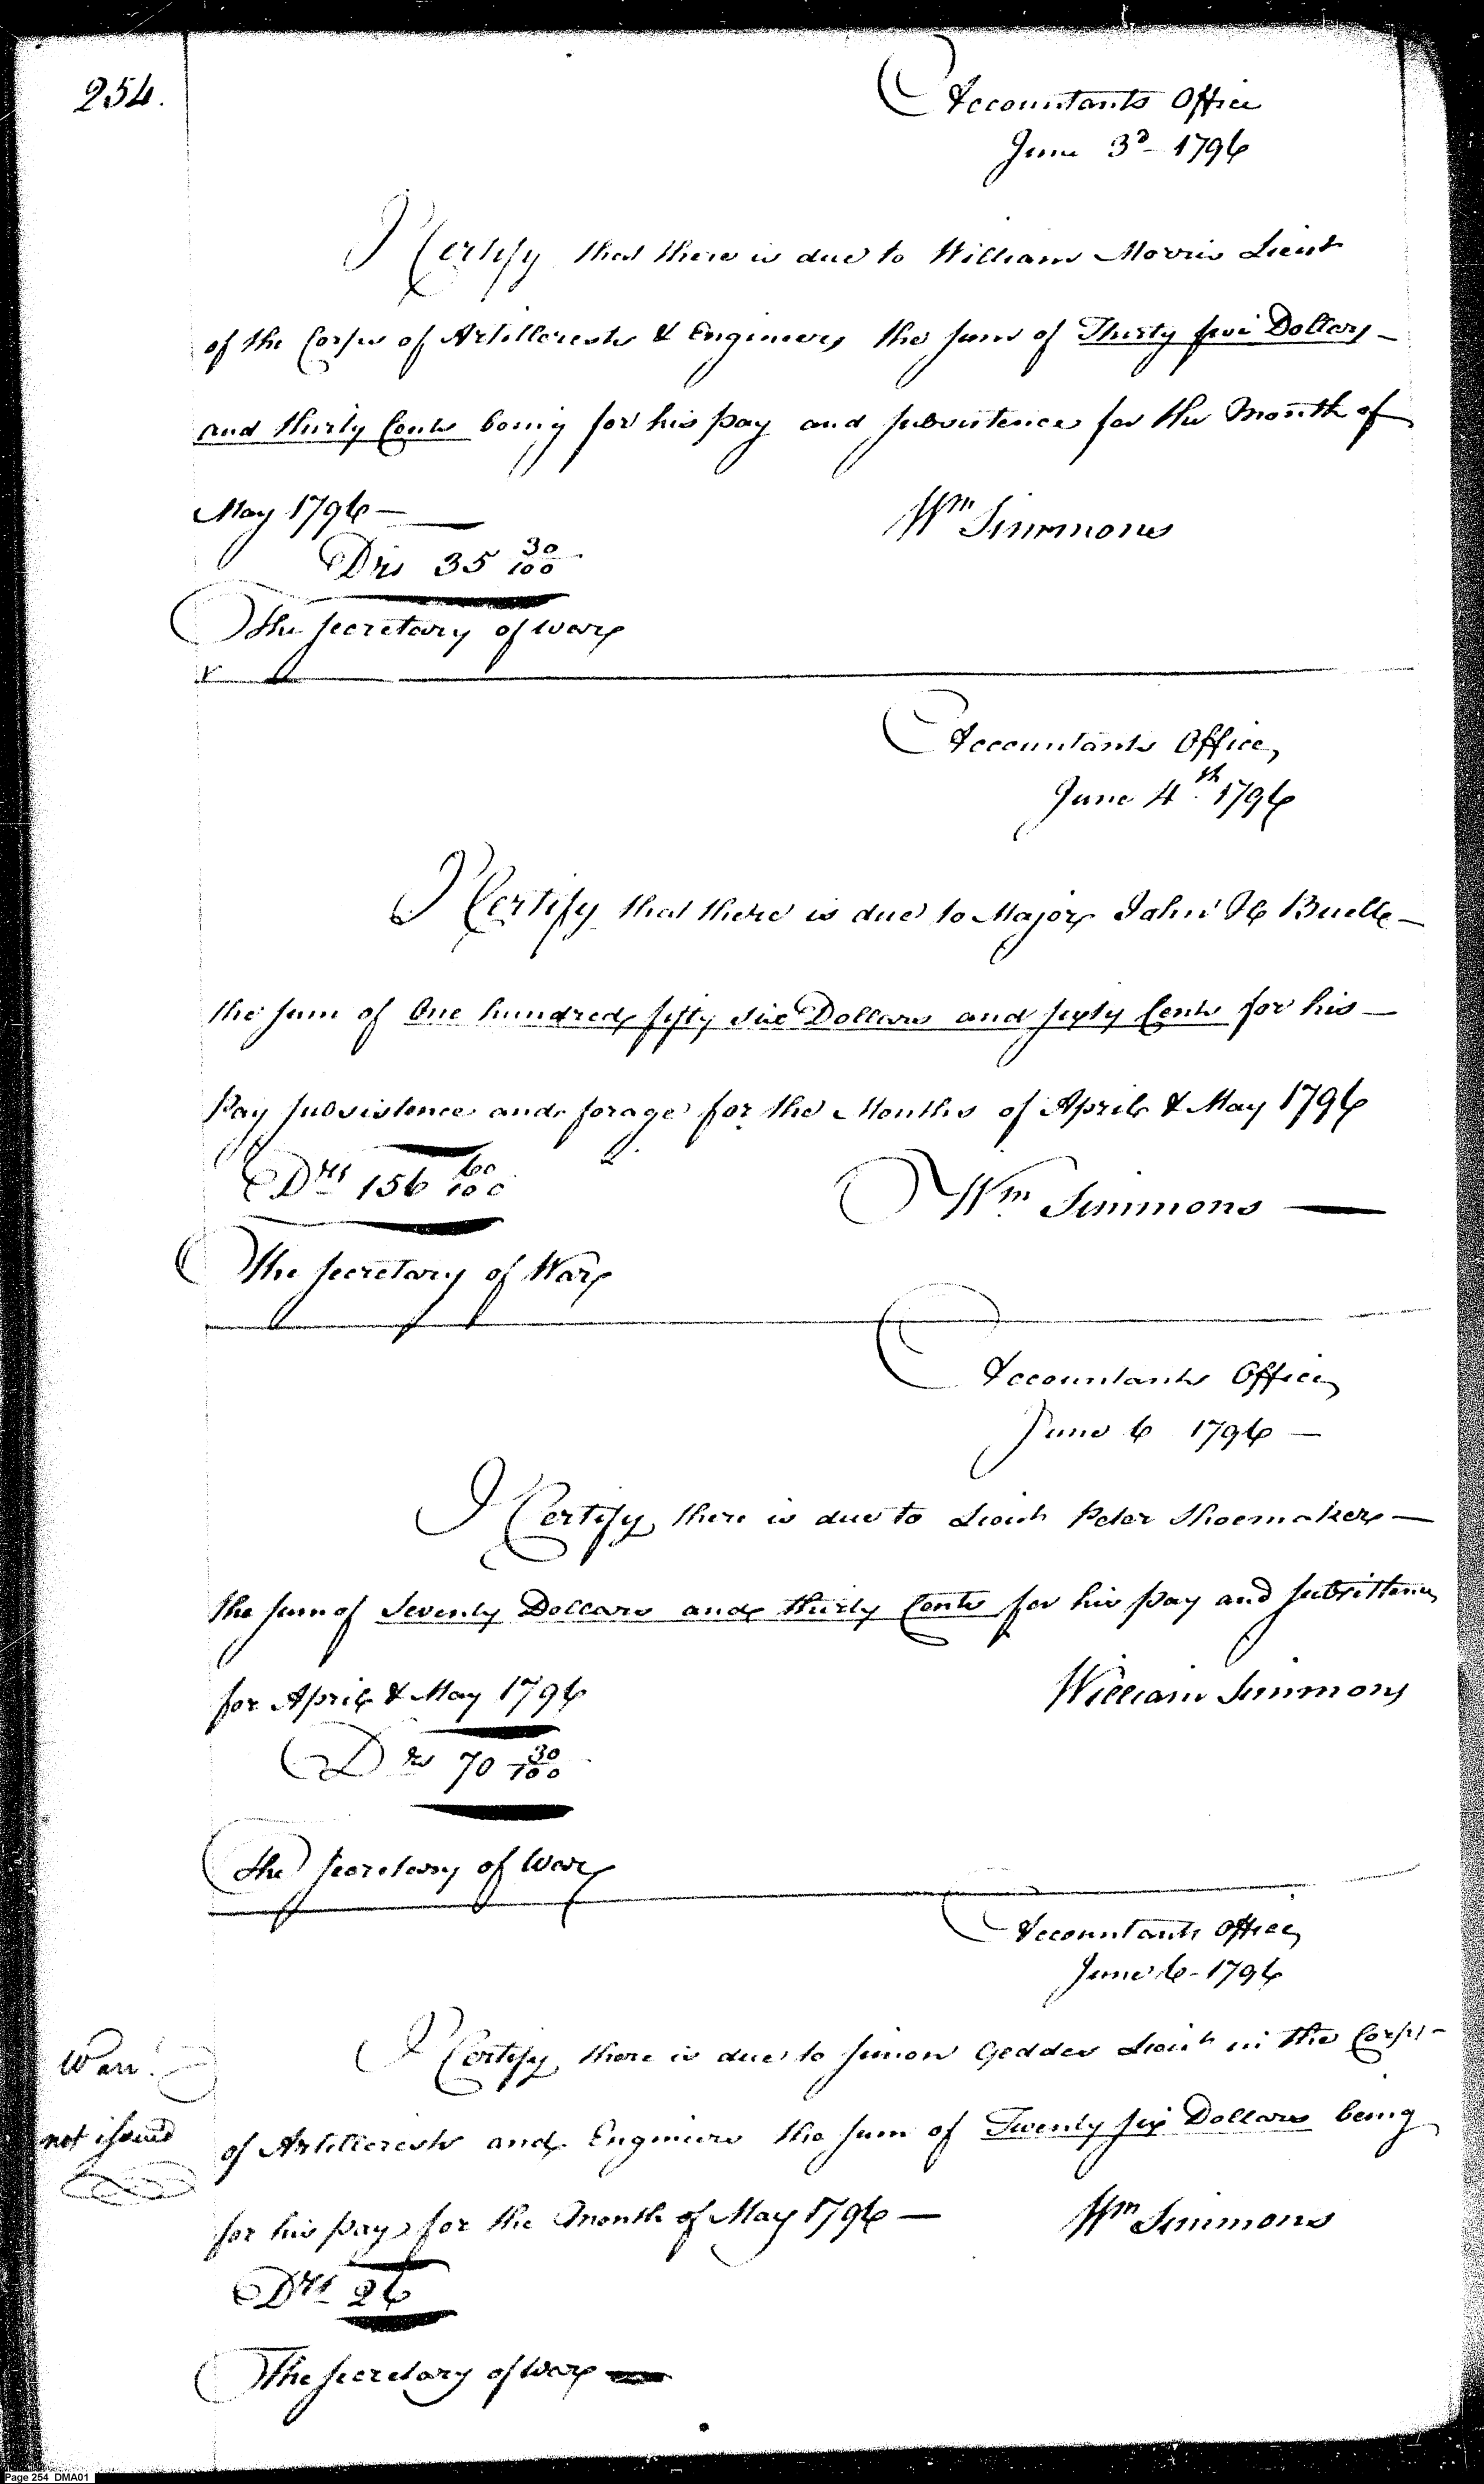 254.
Accountants Office
June 3d 1796
I Certify that there is due to William Morris Lieut
of the Corps of Artillerests & Engineers the sum of Thirty five Dollars –
and thirty Cents being for his pay and subsistence for the Month of
May 1796 —
Wm Simmons
Drs 35 30/100
The Secretary of War
Accountants Office
June 4th 1796
I Certify that there is due to Major John H Buell –
the sum of One hundred fifty six Dollars and sixty Cents for his –
Pay subsistence and forage for the Months of April & May 1796
Drs 156 60/100
Wm Simmons —
The Secretary of War
Accountants Office
June 6 1796 —
I Certify there is due to Lieut Peter Shoemaker —
the sum of Seventy Dollars and thirty Cents for his pay and subsistance
for April & May 1796
William Simmons
Drs 70 30/100
The Secretary of War
Accountants Office
June 6 - 1796
Warr.
not issued
I Certify there is due to Simon Geddes Lieut in the Corps –
of Artillerests and Engineers the sum of Twenty six Dollars being
for his pay for the Month of May 1796 —
Wm Simmons
Drs 26
The Secretary of War —
Page 254 DMA01